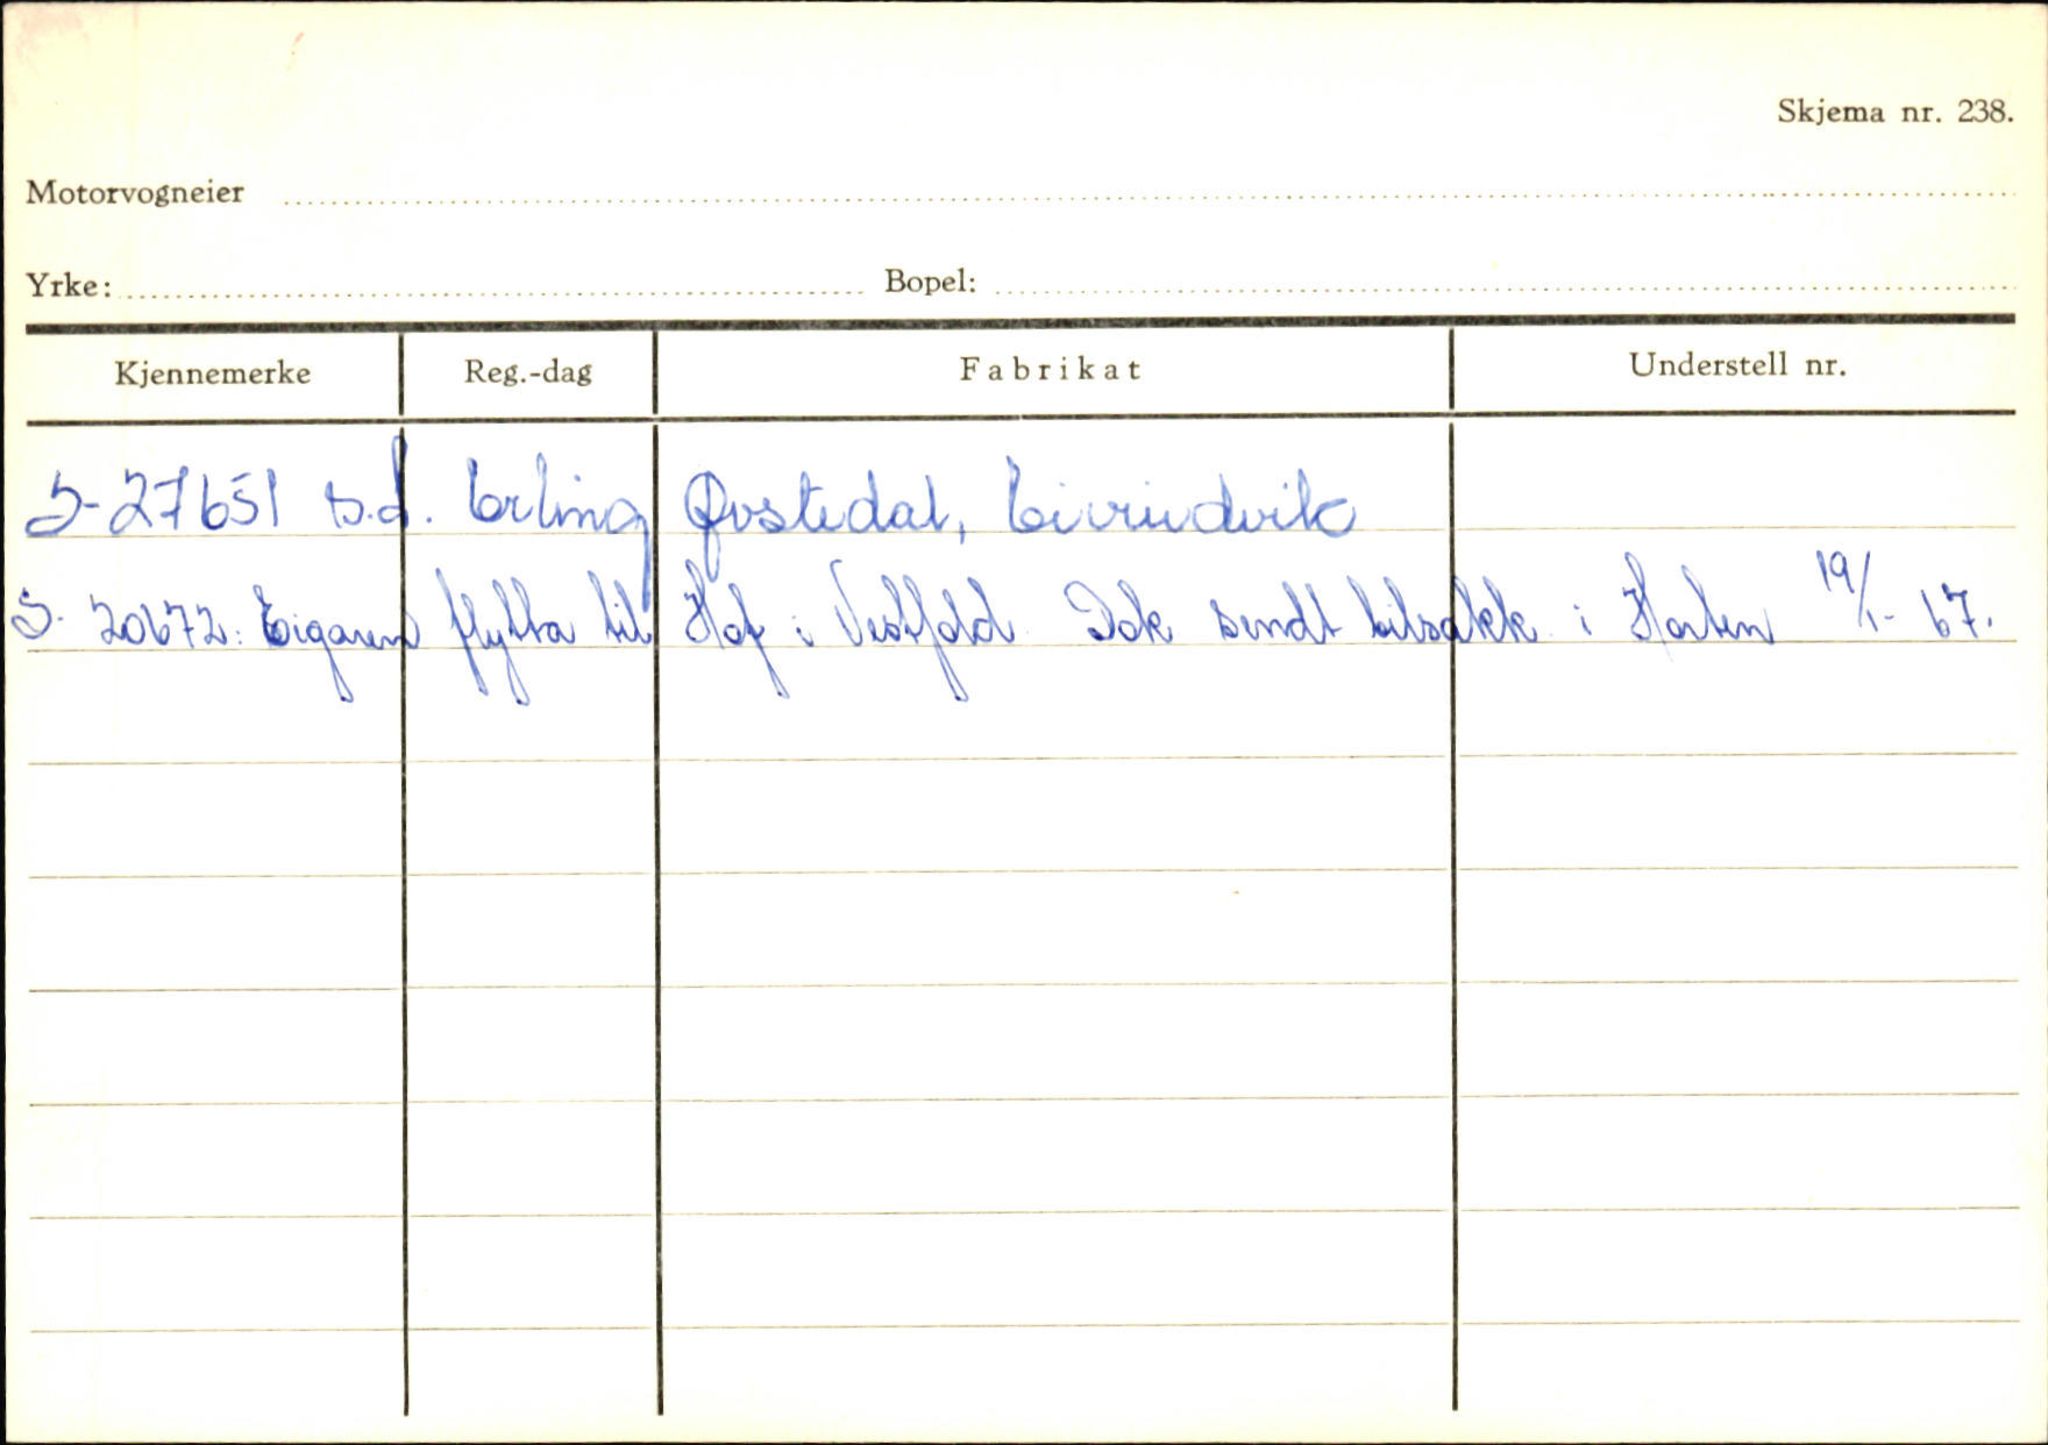 Skjema nr. 238.
Motorvogneier
Yrke: Bopel:
Kjennemerke Reg.-dag Fabrikat Understell nr.
S-27651 s.d. Erling Østedal, Eivindvik
S-20672: Eigaren flytta til Hof i Vestfold. Dok sendt bilsakk. i Horten 19/1-67.